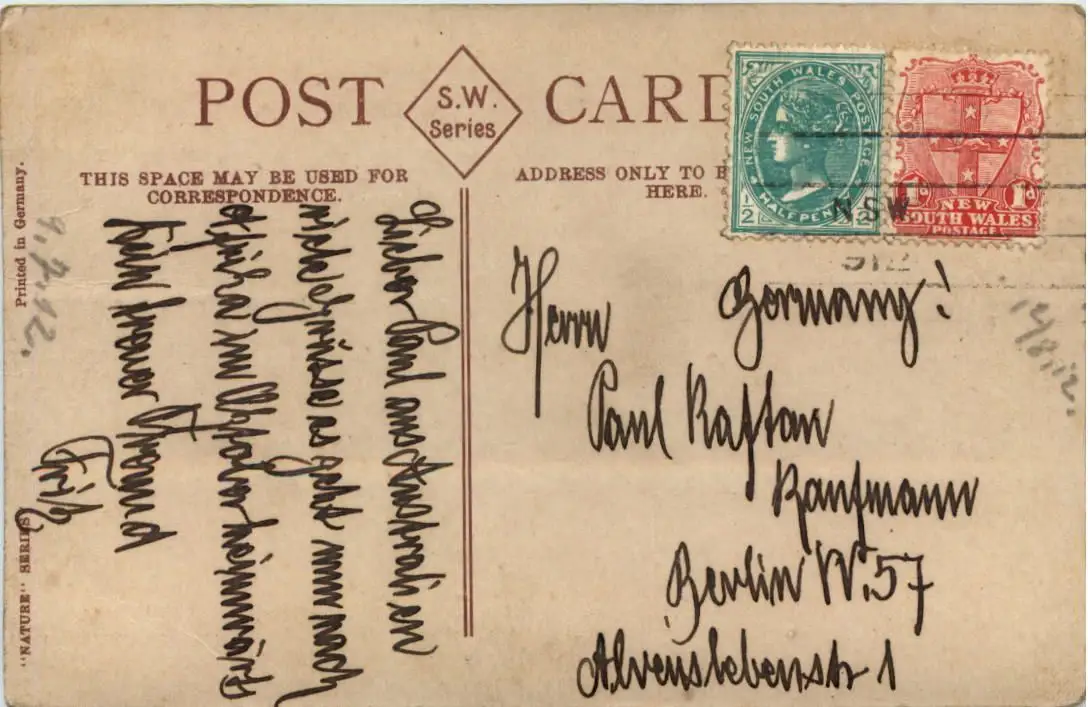 POST CARD
S.W.
Series
THIS SPACE MAY BE USED FOR
CORRESPONDENCE.
ADDRESS ONLY TO B
HERE.
NEW SOUTH WALES POSTAGE
HALFPENNY
1/2 1/2
1d 1d
NEW
SOUTH WALES
POSTAGE
NSW
Printed in Germany.
"NATURE" SERIES
9.7.12.
14/8.12.
Lieber Paul aus Australien
viele Grüsse es geht nun nach
Afrika und später heimwärts
Dein treuer Freund
Fritz
Germany!
Herrn
Paul Kaftan
Kaufmann
Berlin W.57
Alvenslebenstr 1